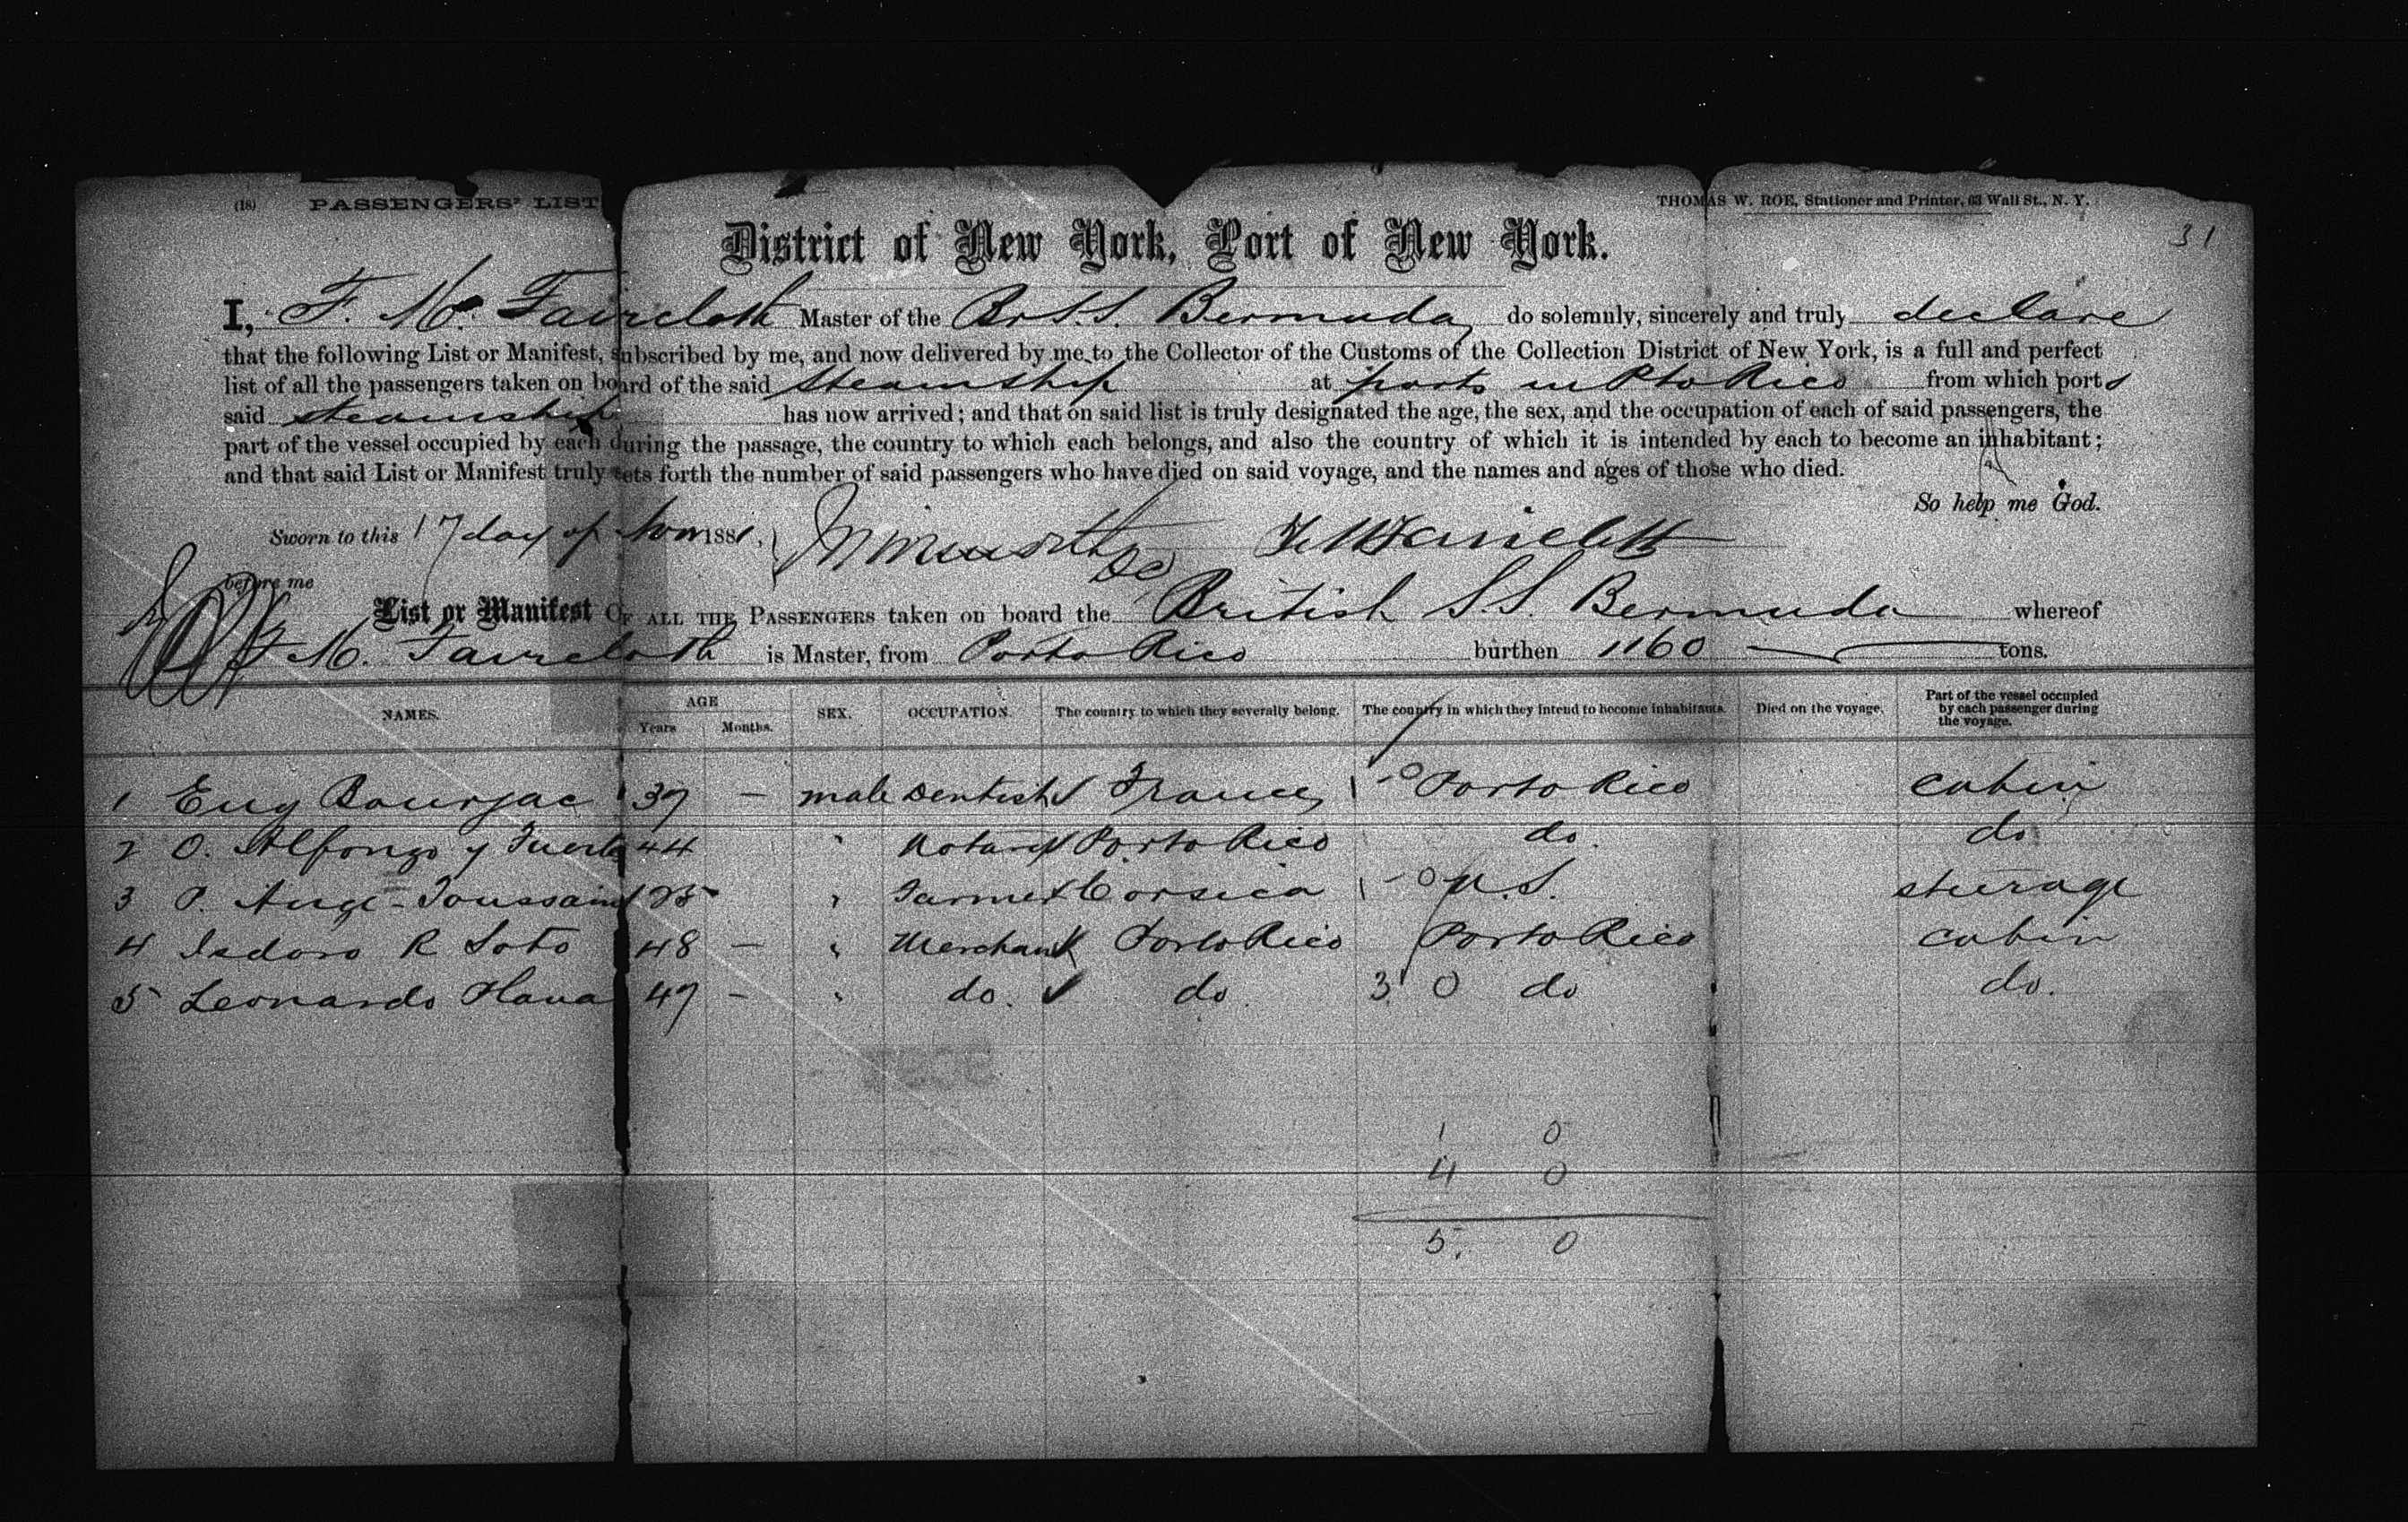 (18) PASSENGERS' LIST
THOMAS W. ROE, Stationer and Printer, 63 Wall St., N. Y.
31
District of New York, Port of New York.
I, F. M. Faircloth Master of the Br S.S. Bermuda do solemnly, sincerely and truly declare
that the following List or Manifest, subscribed by me, and now delivered by me to the Collector of the Customs of the Collection District of New York, is a full and perfect
list of all the passengers taken on board of the said Steamship at ports in Pto Rico from which ports
said steamship has now arrived; and that on said list is truly designated the age, the sex, and the occupation of each of said passengers, the
part of the vessel occupied by each during the passage, the country to which each belongs, and also the country of which it is intended by each to become an inhabitant;
and that said List or Manifest truly sets forth the number of said passengers who have died on said voyage, and the names and ages of those who died.
So help me God.
Sworn to this 17 day of Nov 1881, F M Faircloth
before me
List or Manifest OF ALL THE PASSENGERS taken on board the British S.S. Bermuda whereof
F M. Faircloth is Master, from Porto Rico burthen 1160 tons.
NAMES. AGE Years Months. SEX. OCCUPATION. The country to which they severally belong. The country in which they intend to become inhabitants. Died on the voyage. Part of the vessel occupied by each passenger during the voyage.
1 Eug Bourjac 39 — male Dentist France 1 - 0 Porto Rico cabin
2 O. Alfonzo y 44 " Notary Porto Rico do. do
3 P. Ange-Toussaint 25 " Farmer Corsica 1 - 0 U.S. steerage
4 Isdoro R Soto 48 — " Merchant Porto Rico Porto Rico cabin
5 Leonardo 49 — " do. do 3 0 do do.
1 0
4 0
5. 0